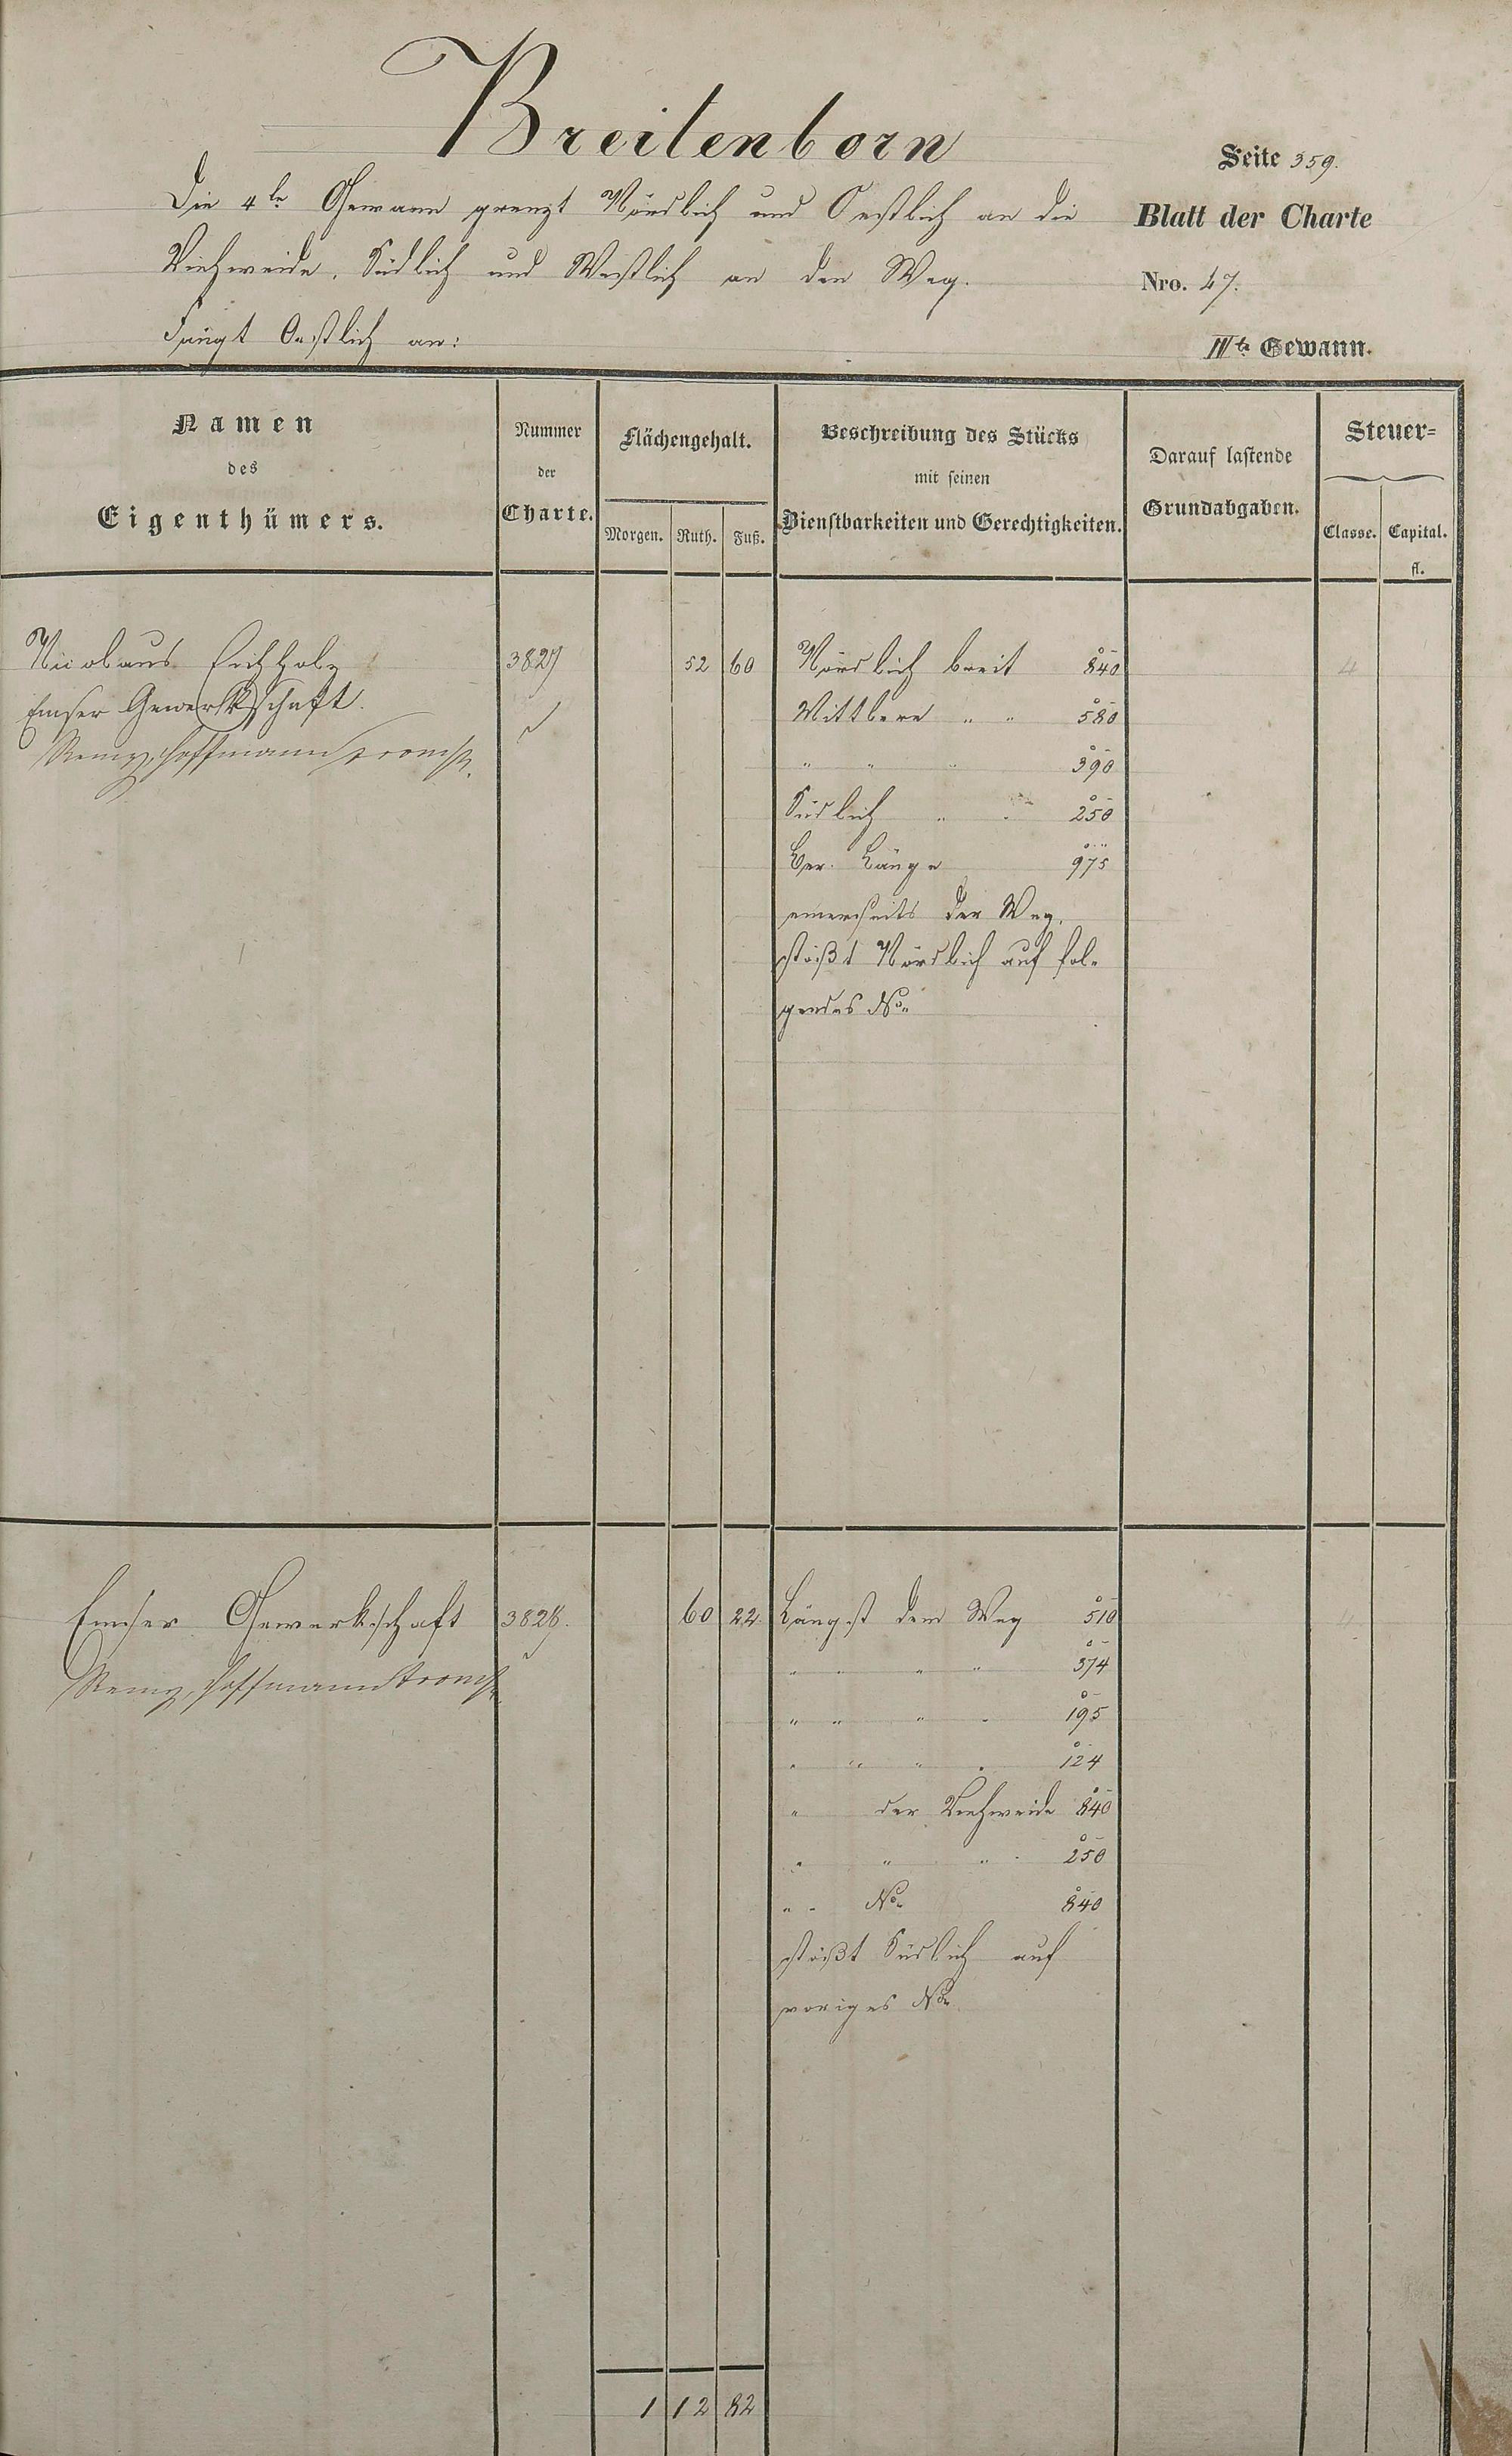 Breitenborn
Seite 359.
Die 4te Gewann grenzt Nördlich und Oestlich an die
Blatt der Charte
Viehweide, Südlich und Westlich an den Weg.
Nro. 47.
Fängt Oestlich an:
IVte Gewann.
Namen
des
Eigenthümers.
Nummer
der
Charte.
Flächengehalt.
Morgen. Ruth. Fuß.
Beschreibung des Stücks
mit seinen
Dienstbarkeiten und Gerechtigkeiten.
Darauf lastende
Grundabgaben.
Steuer=
Classe. Capital.
fl.
Nicolaus Eichholz 3827 52 60 Nördlich breit 840 4
Emser Gewerkschaft. Mittlere " " 580
Remy, Hoffmann
" " " 390
Südlich " " 250
Ver. Länge 975
einerseits der Weg,
stößt Nördlich auf fol-
gendes No.
Emser Gewerkschaft 3828. 60 22. Längst dem Weg 510 4
Remy, Hoffmann
" " " " 374
" " " " 195
" " " " 124
" der Viehweide 840
" " " 250
" " No. 840
stößt Südlich auf
voriges No.
1 12 82